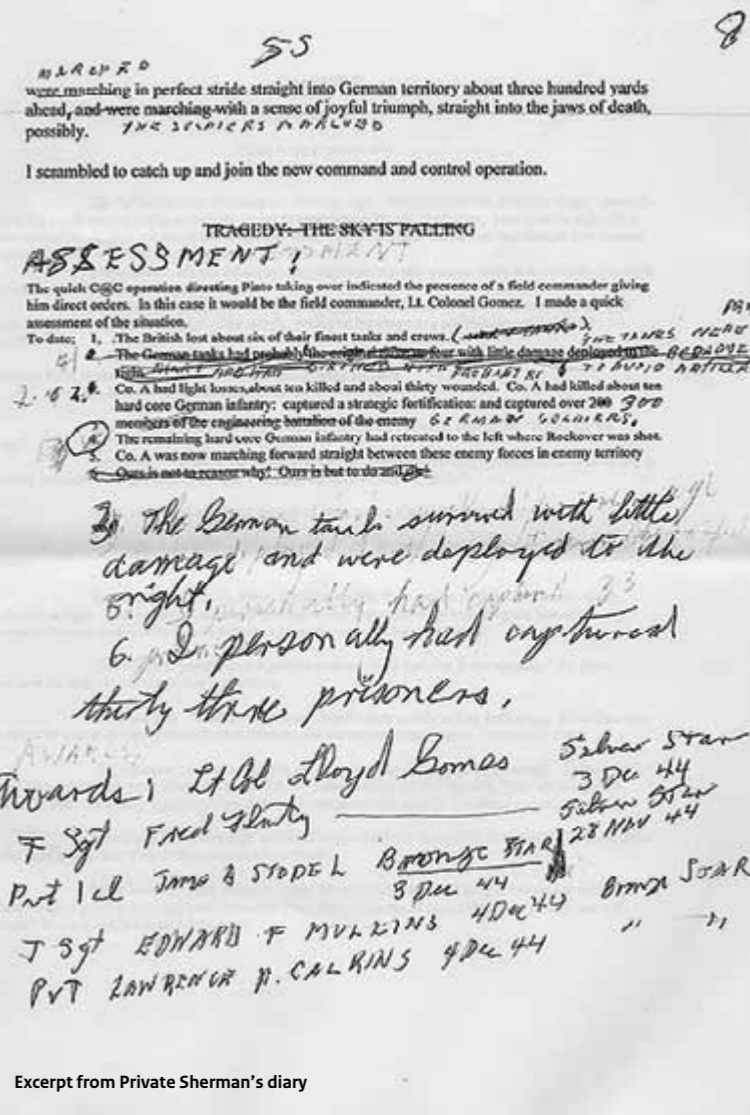 55
8
MARCHED
were marching in perfect stride straight into German territory about three hundred yards
ahead, and were marching with a sense of joyful triumph, straight into the jaws of death,
possibly. THE SOLDIERS MARCHED
I scrambled to catch up and join the new command and control operation.
TRAGEDY: THE SKY IS FALLING
ASSESSMENT:
The quick C@C operation directing Pinto taking over indicated the presence of a field commander giving
him direct orders. In this case it would be the field commander, Lt. Colonel Gomez. I made a quick
assessment of the situation.
To date: 1. .The British lost about six of their finest tanks and crews.
The German tanks had probably the original four with little damage deployed to the
2. Co. A had light losses,about ten killed and about thirty wounded. Co. A had killed about ten
hard core German infantry: captured a strategic fortification: and captured over 200 300
members of the engineering battalion of the enemy GERMAN SOLDIERS.
4. The remaining hard core German infantry had retreated to the left where Rockover was shot.
5. Co. A was now marching forward straight between these enemy forces in enemy territory
6. Ours is not to reason why! Ours is but to do and die!
3. The German tanks survived with little
damage and were deployed to the
right.
6. I personally had captured
thirty three prisoners.
Awards: Lt Col Lloyd Gomes Silver Star
3 Dec 44
T Sgt Fred Silver Star
28 NOV 44
Pvt 1 cl JAMES B STODEL BRONZE STAR
3 Dec 44
T Sgt EDWARD F MULKINS 4 Dec 44 Bronze STAR
PvT LAWRENCE R. CALKINS 4 Dec 44 " "
Excerpt from Private Sherman's diary